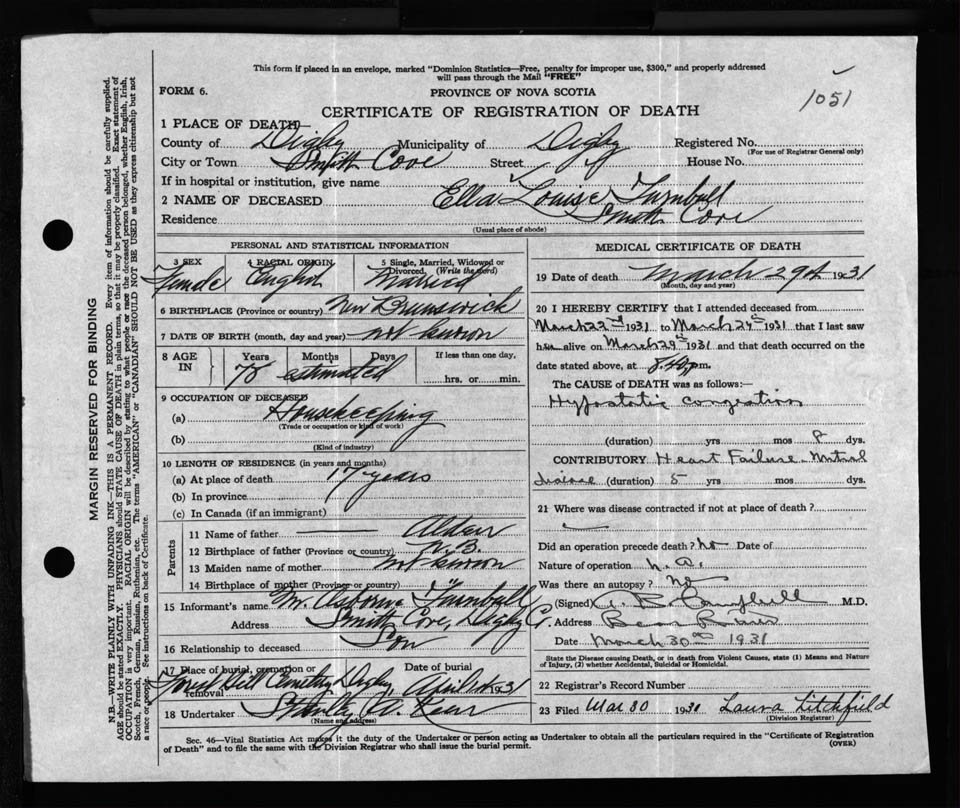 This form if placed in an envelope, marked "Dominion Statistics—Free, penalty for improper use, $300," and properly addressed
will pass through the Mail "FREE"
FORM 6.
PROVINCE OF NOVA SCOTIA
1051
CERTIFICATE OF REGISTRATION OF DEATH
1 PLACE OF DEATH—
County of Digby Municipality of Digby Registered No.
(For use of Registrar General only)
City or Town Smith Cove Street House No.
If in hospital or institution, give name
2 NAME OF DECEASED Ella Louise Turnbull
Residence Smith Cove
(Usual place of abode)
MARGIN RESERVED FOR BINDING
N.B.—WRITE PLAINLY WITH UNFADING INK—THIS IS A PERMANENT RECORD. Every item of information should be carefully supplied.
AGE should be stated EXACTLY. PHYSICIANS should STATE CAUSE OF DEATH in plain terms, so that it may be properly classified. Exact statement of
OCCUPATION is very important. RACIAL ORIGIN will be described by stating to what people or race the deceased person belonged, whether English, Irish,
Scotch, French, German, Russian, Ruthenian, etc. The terms "AMERICAN" or "CANADIAN" SHOULD NOT BE USED as they express citizenship but not
a race or people. See instructions on back of Certificate.
PERSONAL AND STATISTICAL INFORMATION
3 SEX
Female
4 RACIAL ORIGIN
English
5 Single, Married, Widowed or
Divorced, (Write the word)
Married
6 BIRTHPLACE (Province or country) New Brunswick
7 DATE OF BIRTH (month, day and year) not known
8 AGE IN
Years Months Days
78 estimated
If less than one day,
hrs. or min.
9 OCCUPATION OF DECEASED
(a) Housekeeping
(Trade or occupation or kind of work)
(b)
(Kind of industry)
10 LENGTH OF RESIDENCE (in years and months)
(a) At place of death 17 years
(b) In province
(c) In Canada (if an immigrant)
Parents
11 Name of father Alden
12 Birthplace of father (Province or country) N.B.
13 Maiden name of mother not known
14 Birthplace of mother (Province or country) "
15 Informant's name Mr. Osborne Turnbull
Address Smith Cove, Digby C.
16 Relationship to deceased Son
17 Place of burial, cremation or
removal Forest Hill Cemetery Digby
Date of burial
April 1st 1931
18 Undertaker Stanley A.
(Name and address)
MEDICAL CERTIFICATE OF DEATH
19 Date of death March 29th 1931
(Month, day and year)
20 I HEREBY CERTIFY that I attended deceased from
March 22nd 1931 to March 29th 1931 that I last saw
her alive on March 29th 1931 and that death occurred on the
date stated above, at 8.40 p.m.
The CAUSE of DEATH was as follows:—
Hypostatic congestion
(duration) yrs mos 8 dys.
CONTRIBUTORY Heart Failure Mitral
disease (duration) 5 yrs mos dys.
21 Where was disease contracted if not at place of death?
Did an operation precede death? no Date of
Nature of operation n. o.
Was there an autopsy? No
(Signed) A. B. Campbell M.D.
Address Bear River
Date March 30th 1931
State the Disease causing Death, or in death from Violent Causes, state (1) Means and Nature
of Injury, (2) whether Accidental, Suicidal or Homicidal.
22 Registrar's Record Number
23 Filed Mar 30 1931 Laura Litchfield
(Division Registrar)
Sec. 46—Vital Statistics Act makes it the duty of the Undertaker or person acting as Undertaker to obtain all the particulars required in the "Certificate of Registration
of Death" and to file the same with the Division Registrar who shall issue the burial permit.
(OVER)